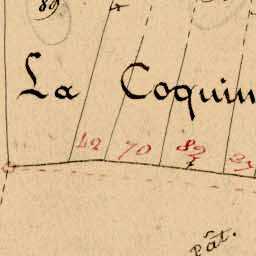 89
La Coquin
42 70 82 37
Pât.